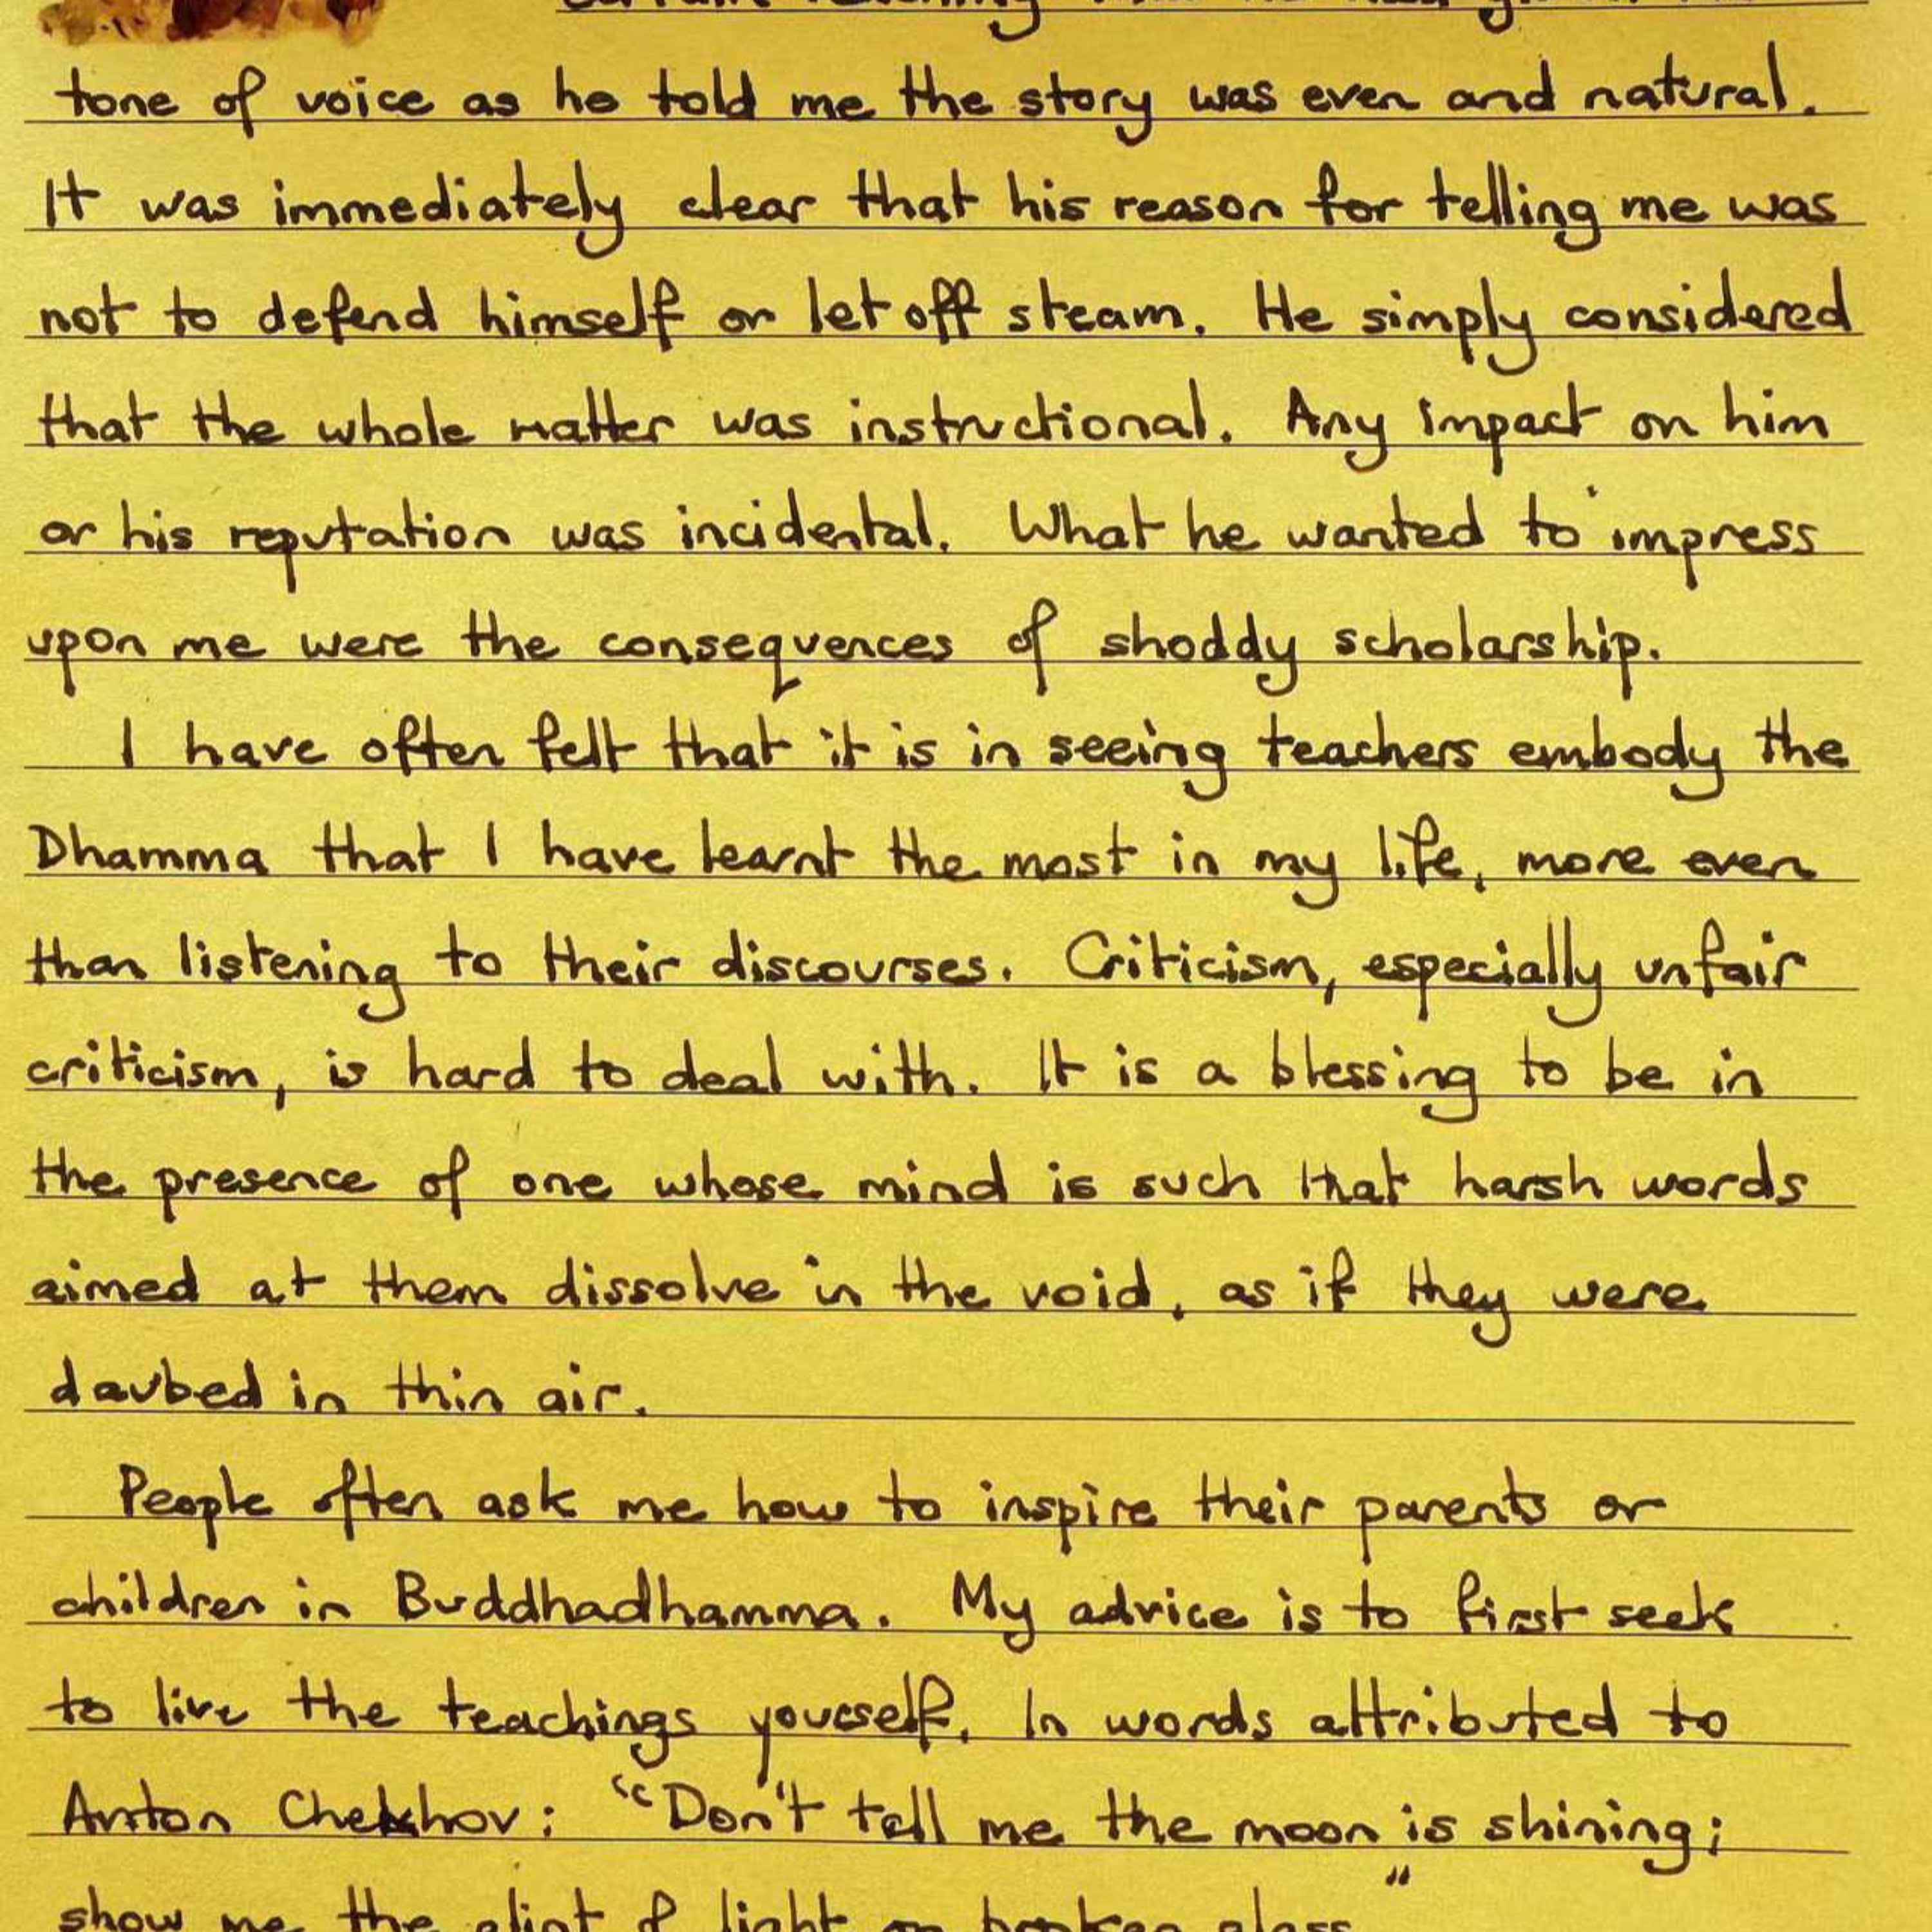 tone of voice as he told me the story was even and natural.
It was immediately clear that his reason for telling me was
not to defend himself or let off steam. He simply considered
that the whole matter was instructional. Any impact on him
or his reputation was incidental. What he wanted to impress
upon me were the consequences of shoddy scholarship.
I have often felt that it is in seeing teachers embody the
Dhamma that I have learnt the most in my life, more even
than listening to their discourses. Criticism, especially unfair
criticism, is hard to deal with. It is a blessing to be in
the presence of one whose mind is such that harsh words
aimed at them dissolve in the void, as if they were
daubed in thin air.
People often ask me how to inspire their parents or
children in Buddhadhamma. My advice is to first seek
to live the teachings yourself. In words attributed to
Anton Chekhov: "Don't tell me the moon is shining;
show me the glint of light on broken glass"